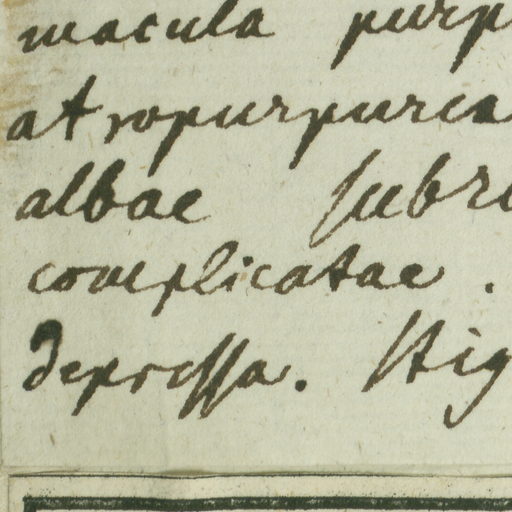 macula purp
atropurpurea
albae subr
complicatae.
depressa. Stig